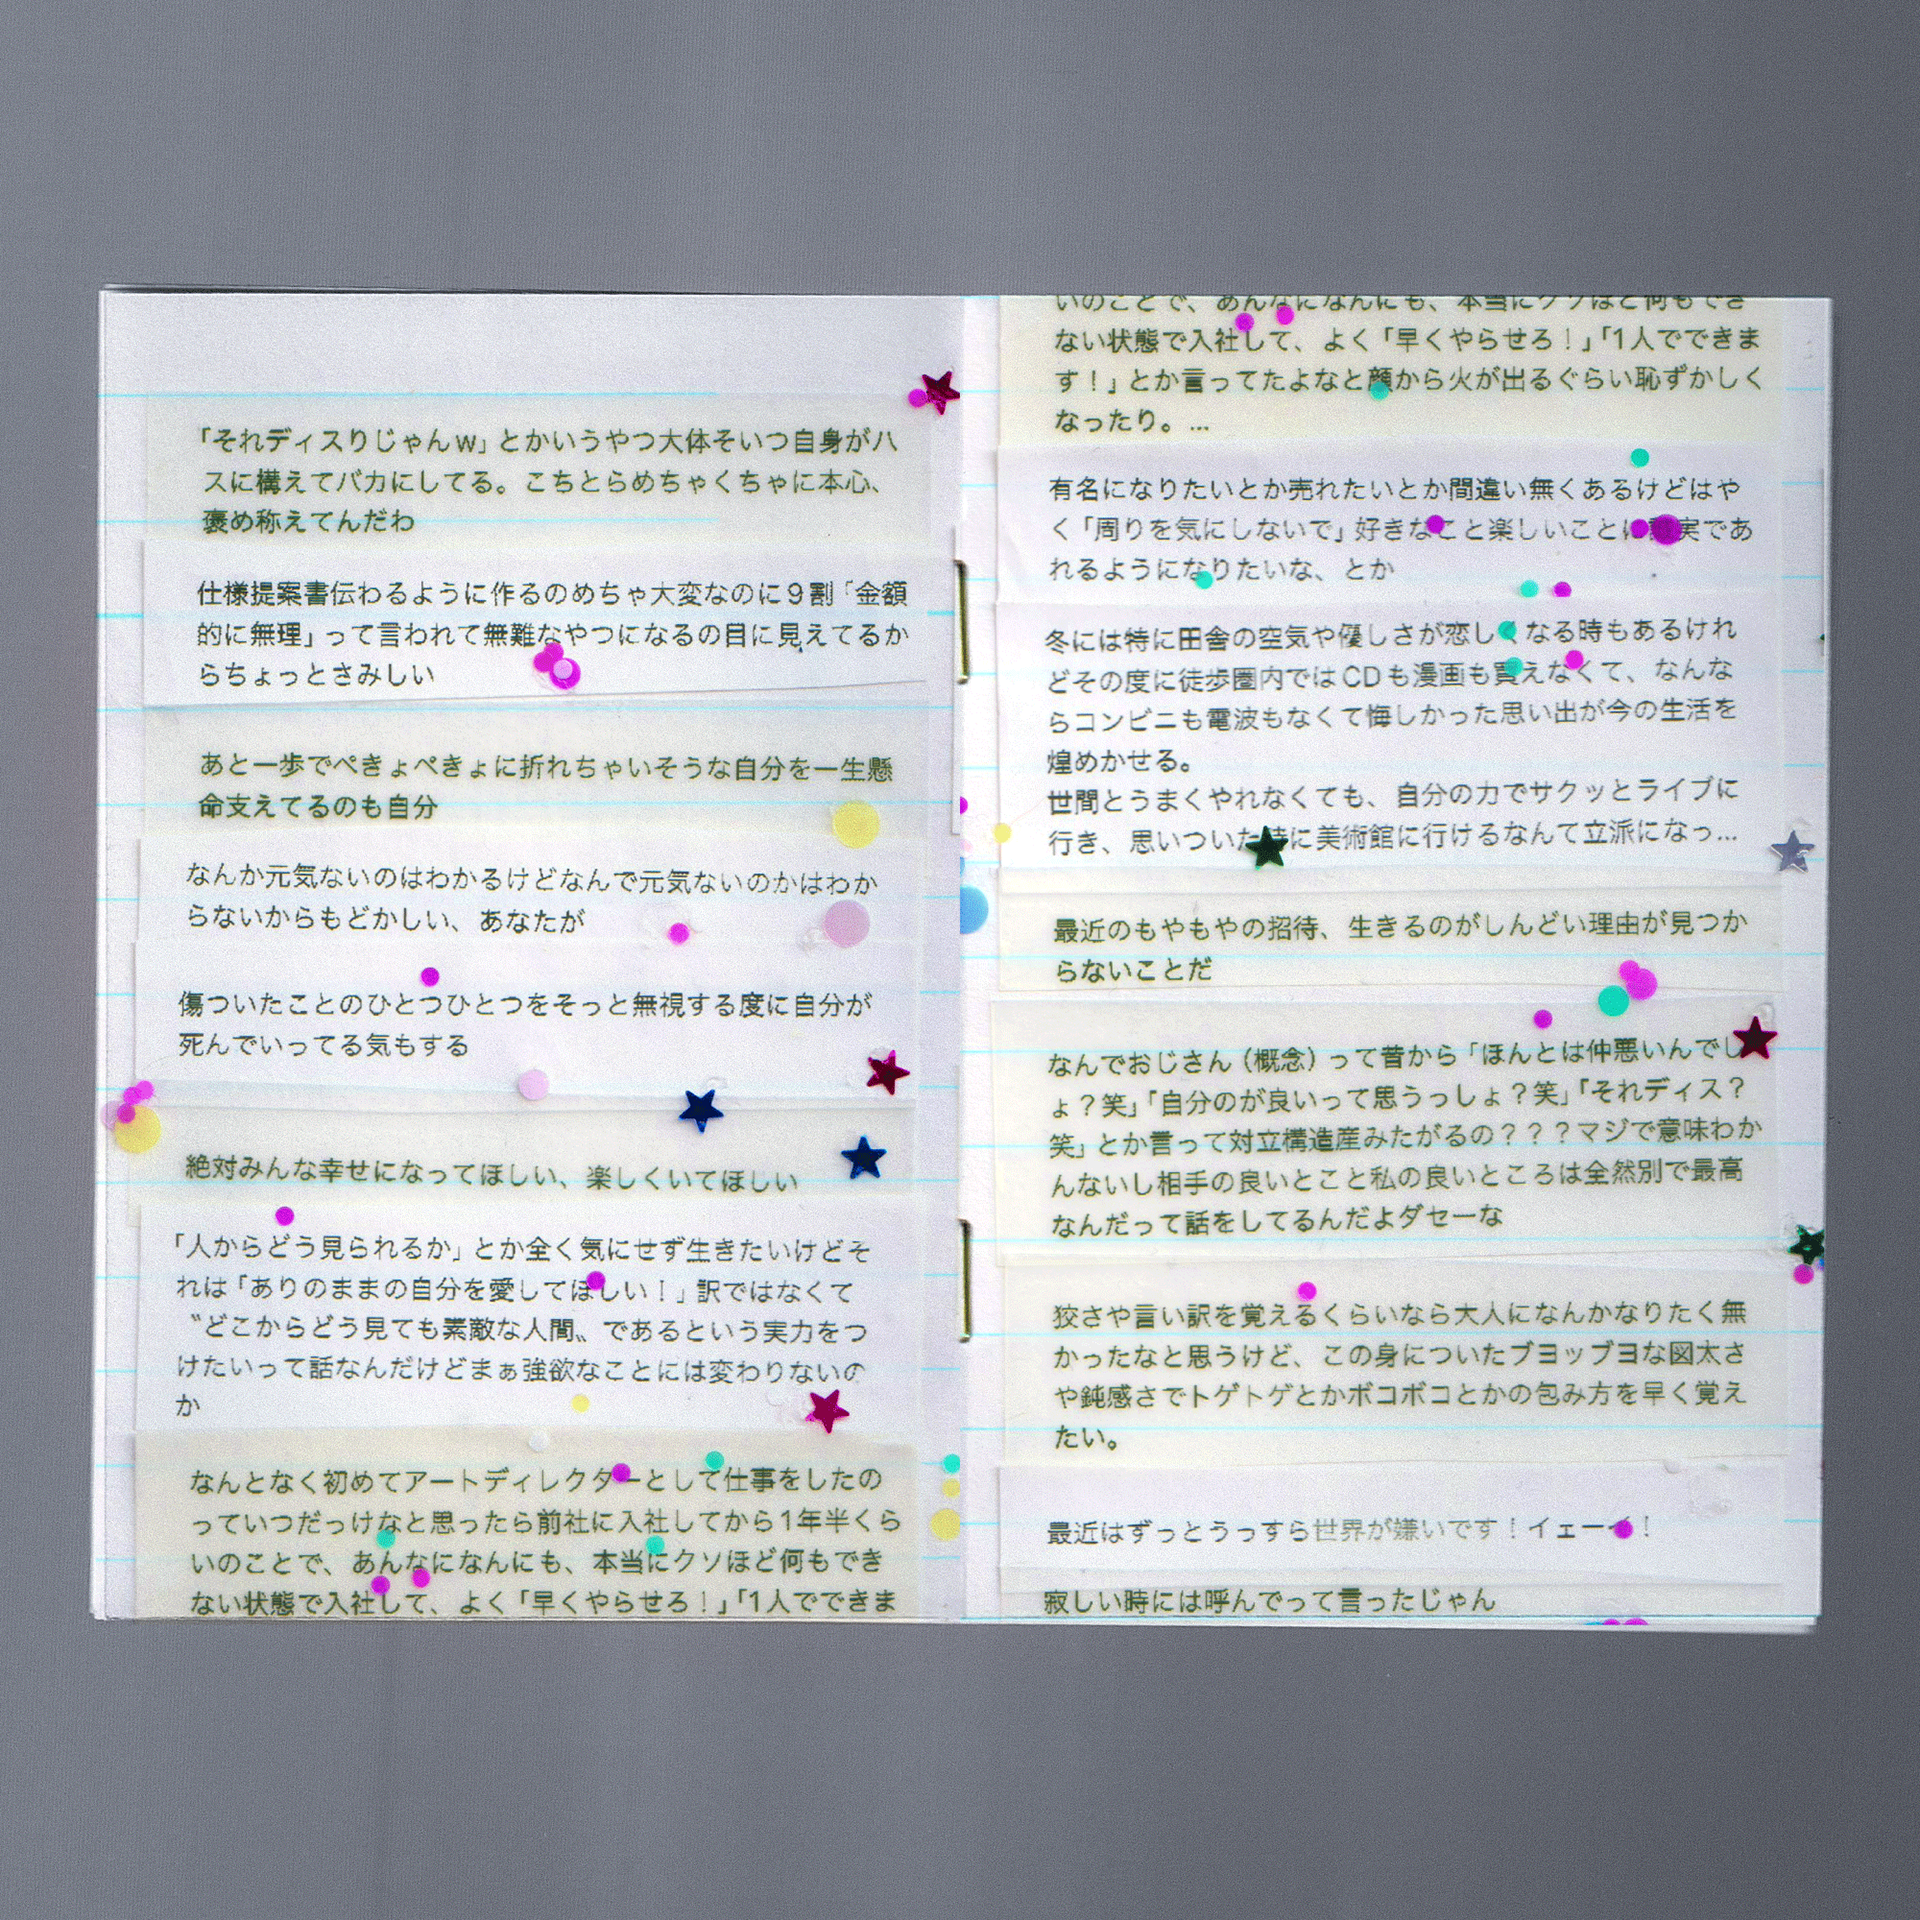 「それディスりじゃんw」とかいうやつ大体そいつ自身がハ
スに構えてバカにしてる。こちとらめちゃくちゃに本心、
褒め称えてんだわ
仕様提案書伝わるように作るのめちゃ大変なのに9割「金額
的に無理」って言われて無難なやつになるの目に見えてるか
らちょっとさみしい
あと一歩でぺきょぺきょに折れちゃいそうな自分を一生懸
命支えてるのも自分
なんか元気ないのはわかるけどなんで元気ないのかはわか
らないからもどかしい、あなたが
傷ついたことのひとつひとつをそっと無視する度に自分が
死んでいってる気もする
絶対みんな幸せになってほしい、楽しくいてほしい
「人からどう見られるか」とか全く気にせず生きたいけどそ
れは「ありのままの自分を愛してほしい！」訳ではなくて
〝どこからどう見ても素敵な人間〟であるという実力をつ
けたいって話なんだけどまぁ強欲なことには変わりないの
か
なんとなく初めてアートディレクターとして仕事をしたの
っていつだっけなと思ったら前社に入社してから1年半くら
いのことで、あんなになんにも、本当にクソほど何もでき
ない状態で入社して、よく「早くやらせろ！」「1人でできま
いのことで、あんなになんにも、本当にクソほど何もでき
ない状態で入社して、よく「早くやらせろ！」「1人でできま
す！」とか言ってたよなと顔から火が出るぐらい恥ずかしく
なったり。…
有名になりたいとか売れたいとか間違い無くあるけどはや
く「周りを気にしないで」好きなこと楽しいことに実であ
れるようになりたいな、とか
冬には特に田舎の空気や優しさが恋しくなる時もあるけれ
どその度に徒歩圏内ではCDも漫画も買えなくて、なんな
らコンビニも電波もなくて悔しかった思い出が今の生活を
煌めかせる。
世間とうまくやれなくても、自分の力でサクッとライブに
行き、思いついた時に美術館に行けるなんて立派になっ…
最近のもやもやの招待、生きるのがしんどい理由が見つか
らないことだ
なんでおじさん（概念）って昔から「ほんとは仲悪いんでし
ょ？笑」「自分のが良いって思うっしょ？笑」「それディス？
笑」とか言って対立構造産みたがるの？？？マジで意味わか
んないし相手の良いとこと私の良いところは全然別で最高
なんだって話をしてるんだよダセーな
狡さや言い訳を覚えるくらいなら大人になんかなりたく無
かったなと思うけど、この身についたブヨッブヨな図太さ
や鈍感さでトゲトゲとかボコボコとかの包み方を早く覚え
たい。
最近はずっとうっすら世界が嫌いです！イェーイ！
寂しい時には呼んでって言ったじゃん